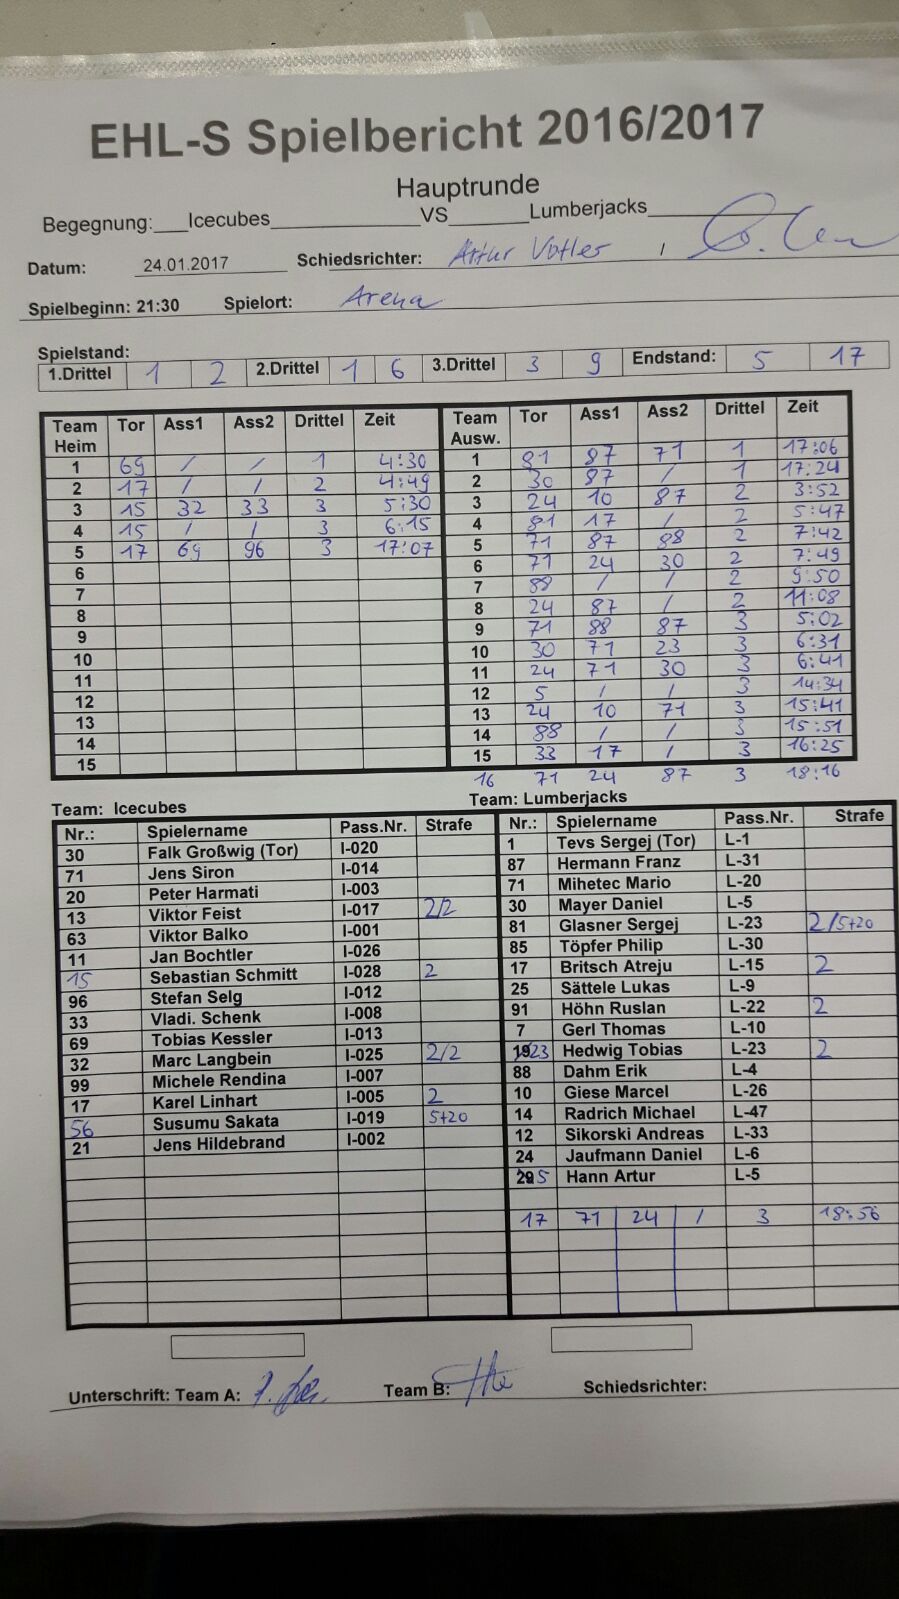 EHL-S Spielbericht 2016/2017
Hauptrunde
Begegnung: Icecubes VS Lumberjacks
Datum: 24.01.2017 Schiedsrichter: Artur Votler /
Spielbeginn: 21:30 Spielort: Arena
Spielstand:
1.Drittel 1 2 2.Drittel 1 6 3.Drittel 3 9 Endstand: 5 17
Team Heim Tor Ass1 Ass2 Drittel Zeit Team Ausw. Tor Ass1 Ass2 Drittel Zeit
1 69 / / 1 4:30 1 81 87 71 1 17:06
2 17 / / 2 4:49 2 30 87 / 1 17:24
3 15 32 33 3 5:30 3 24 10 87 2 3:52
4 15 / / 3 6:15 4 81 17 / 2 5:47
5 17 69 96 3 17:07 5 71 87 88 2 7:42
6 6 71 24 30 2 7:49
7 7 88 / / 2 9:50
8 8 24 87 / 2 11:08
9 9 71 88 87 3 5:02
10 10 30 71 23 3 6:31
11 11 24 71 30 3 6:41
12 12 5 / / 3 14:34
13 13 24 10 71 3 15:41
14 14 88 / / 3 15:51
15 15 33 17 / 3 16:25
16 71 24 87 3 18:16
Team: Icecubes Team: Lumberjacks
Nr.: Spielername Pass.Nr. Strafe Nr.: Spielername Pass.Nr. Strafe
30 Falk Großwig (Tor) I-020 1 Tevs Sergej (Tor) L-1
71 Jens Siron I-014 87 Hermann Franz L-31
20 Peter Harmati I-003 71 Mihetec Mario L-20
13 Viktor Feist I-017 2/2 30 Mayer Daniel L-5
63 Viktor Balko I-001 81 Glasner Sergej L-23 2/5+20
11 Jan Bochtler I-026 85 Töpfer Philip L-30
15 Sebastian Schmitt I-028 2 17 Britsch Atreju L-15 2
96 Stefan Selg I-012 25 Sättele Lukas L-9
33 Vladi. Schenk I-008 91 Höhn Ruslan L-22 2
69 Tobias Kessler I-013 7 Gerl Thomas L-10
32 Marc Langbein I-025 2/2 23 Hedwig Tobias L-23 2
99 Michele Rendina I-007 88 Dahm Erik L-4
17 Karel Linhart I-005 2 10 Giese Marcel L-26
56 Susumu Sakata I-019 5+20 14 Radrich Michael L-47
21 Jens Hildebrand I-002 12 Sikorski Andreas L-33
24 Jaufmann Daniel L-6
5 Hann Artur L-5
17 71 24 / 3 18:56
Unterschrift: Team A: Team B: Schiedsrichter: